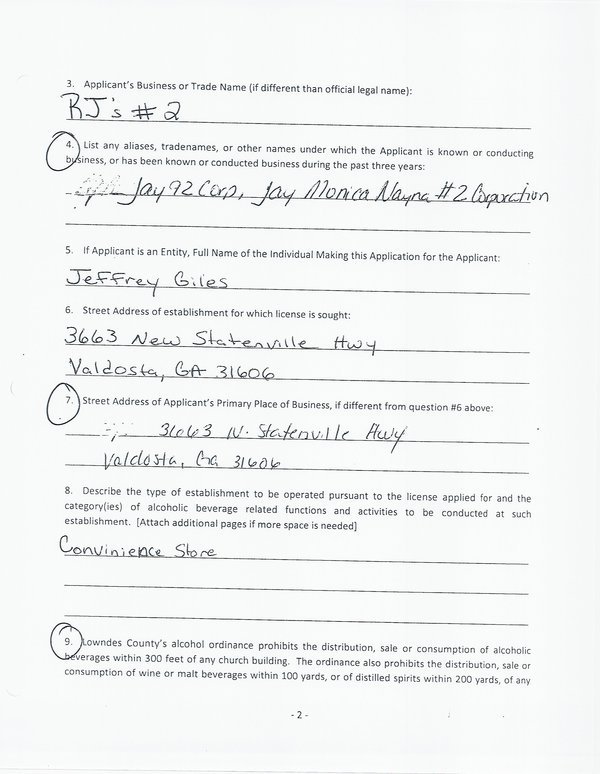 3. Applicant's Business or Trade Name (if different than official legal name):
RJ's # 2
4. List any aliases, tradenames, or other names under which the Applicant is known or conducting
business, or has been known or conducted business during the past three years:
Jay92 Corp, Jay Monica Nayna #2 Corporation
5. If Applicant is an Entity, Full Name of the Individual Making this Application for the Applicant:
Jeffrey Giles
6. Street Address of establishment for which license is sought:
3663 New Statenville Hwy
Valdosta, GA 31606
7. Street Address of Applicant's Primary Place of Business, if different from question #6 above:
3663 N. Statenville Hwy
Valdosta, Ga 31606
8. Describe the type of establishment to be operated pursuant to the license applied for and the
category(ies) of alcoholic beverage related functions and activities to be conducted at such
establishment. [Attach additional pages if more space is needed]
Convinience Store
9. Lowndes County's alcohol ordinance prohibits the distribution, sale or consumption of alcoholic
beverages within 300 feet of any church building. The ordinance also prohibits the distribution, sale or
consumption of wine or malt beverages within 100 yards, or of distilled spirits within 200 yards, of any
- 2 -